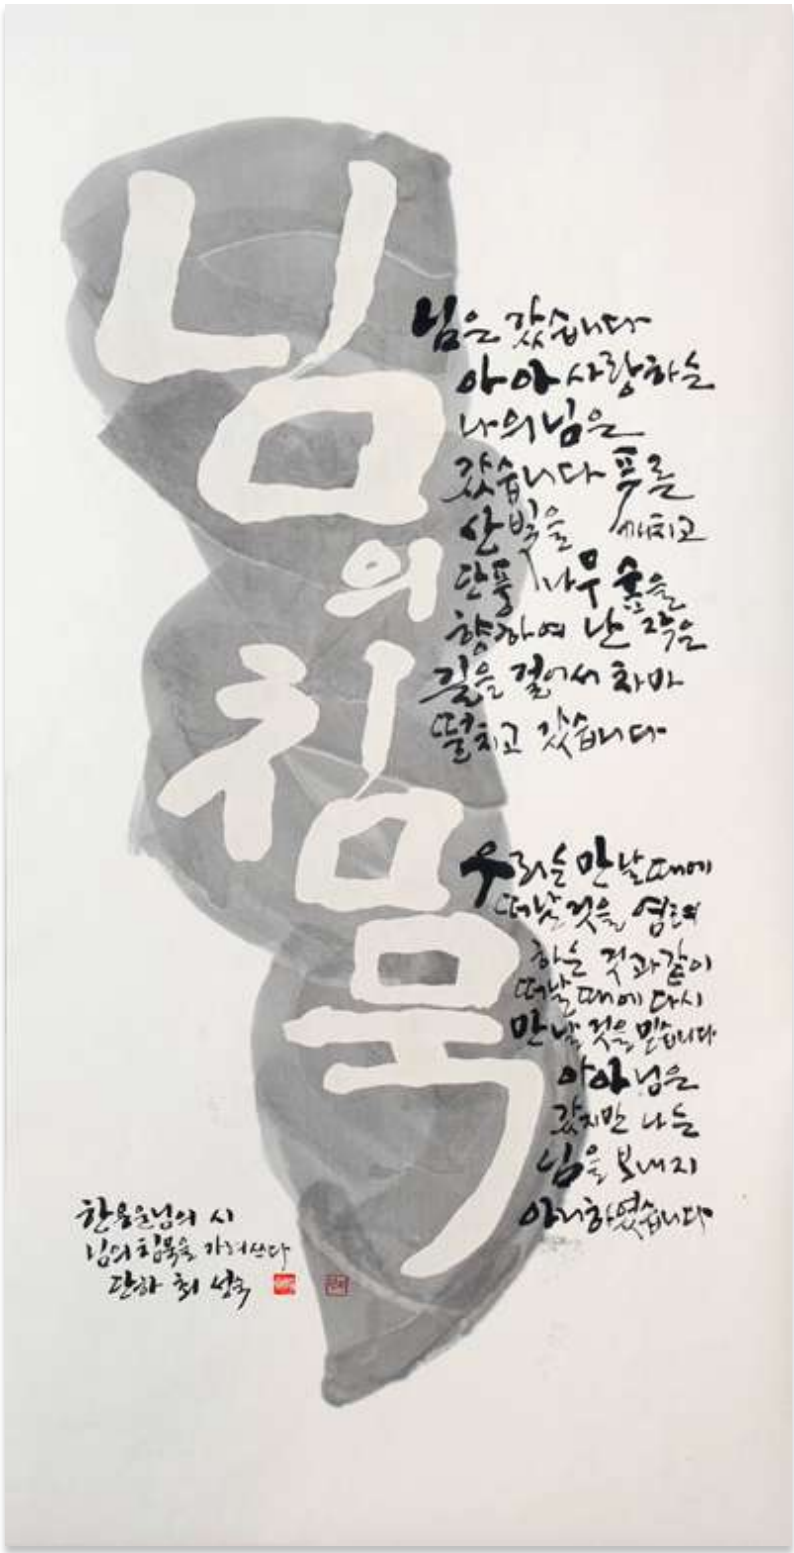 님의 침묵
님은 갔습니다
아아 사랑하는
나의 님은
갔습니다 푸른
산빛을 깨치고
단풍나무 숲을
향하여 난 작은
길을 걸어서 차마
떨치고 갔습니다
우리는 만날 때에
떠날 것을 염려
하는 것과 같이
떠날 때에 다시
만날 것을 믿습니다
아아 님은
갔지만 나는
님을 보내지
아니하였습니다
한용운님의 시
님의 침묵을 가려 쓰다
단하 최성숙